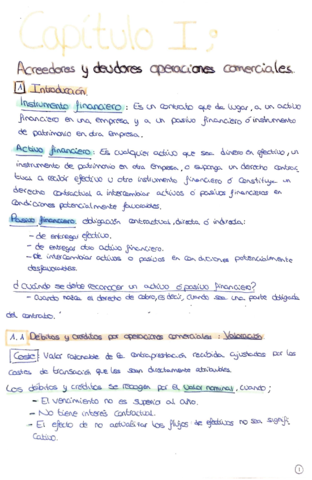 Capítulo I:
Acreedores y deudores operaciones comerciales.
1 Introducción
Instrumento financiero: Es un contrato que da lugar, a un activo
financiero en una empresa, y a un pasivo financiero o instrumento
de patrimonio en otra empresa.
Activo financiero: Es cualquier activo que sea dinero en efectivo, un
instrumento de patrimonio en otra empresa, o suponga un derecho contrac
tual a recibir efectivo u otro instrumento financiero o constituya un
derecho contractual a intercambiar activos o pasivos financieros en
condiciones potencialmente favorables.
Pasivo financiero: obligación contractual, directa o indirecta:
- de entregar efectivo.
- de entregar otro activo financiero.
- de intercambiar activos o pasivos en condiciones potencialmente
desfavorables.
¿Cuándo se debe reconocer un activo o pasivo financiero?
- Cuando nazca el derecho de cobro, es decir, cuando sea una parte obligada
del contrato.
1.1 Débitos y créditos por operaciones comerciales: Valoración
Coste: Valor razonable de la contraprestación recibida ajustados por los
costes de transacción que les sean directamente atribuibles.
Los débitos y créditos se recogen por el valor nominal, cuando:
- El vencimiento no es superior al año.
- No tiene interés contractual.
- El efecto de no actualizar los flujos de efectivos no sea signifi
cativo.
1